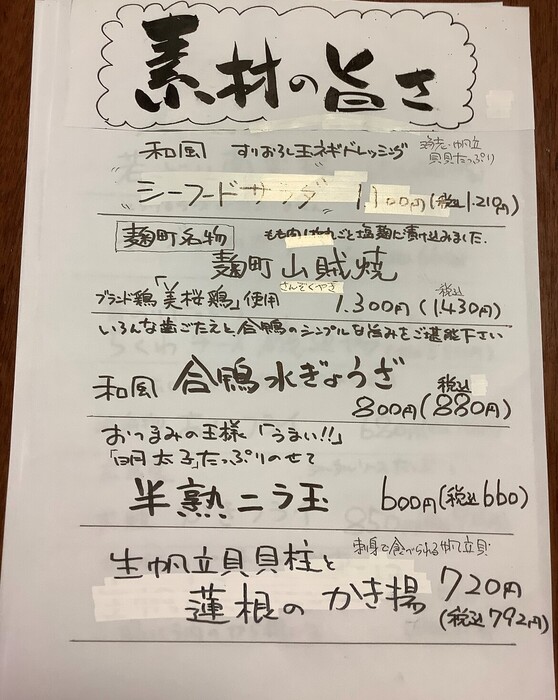 素材の旨さ
和風 すりおろし玉ネギドレッシング 海老・帆立
貝貝たっぷり
"シーフードサラダ" 1.100円(税込1.210円)
麹町名物 もも肉丸ごと塩麹に漬け込みました.
麹町 山賊焼
さんぞくやき
ブランド鶏「美桜鶏」使用 1.300円(税込1.430円)
いろんな歯ごたえと、合鴨のシンプルな旨みをご堪能下さい
和風 合鴨水ぎょうざ 800円(税込880円)
おつまみの王様「うまい!!」
「明太子」たっぷりのせて
半熟ニラ玉 600円(税込660)
生帆立貝貝柱と 刺身で食べられる帆立貝
蓮根の かき揚 720円
(税込792円)